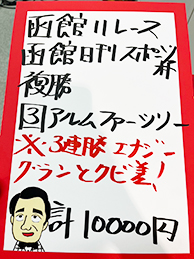 函館11レース
函館日刊スポーツ杯
複勝
3アルムファーツリー
※3連勝エナジー
グランとクビ差!
計10000円